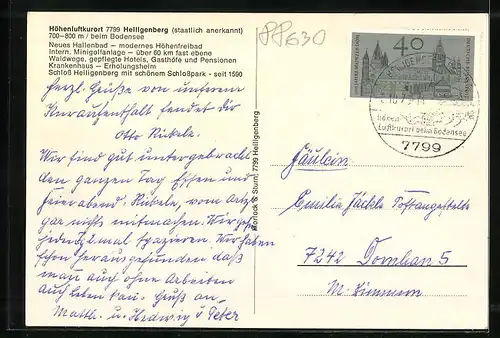 Höhenluftkurort 7799 Heiligenberg (staatlich anerkannt)
700–800 m / beim Bodensee
Neues Hallenbad – modernes Höhenfreibad
Intern. Minigolfanlage – über 60 km fast ebene
Waldwege, gepflegte Hotels, Gasthöfe und Pensionen
Krankenhaus – Erholungsheim
Schloß Heiligenberg mit schönem Schloßpark - seit 1590
PP630
herzl. Grüße von unserem
Kuraufenthalt sendet dir
Otto Rükele.
Wir sind gut untergebracht
den ganzen Tag Essen und
Feierabend. Rükele, vom Arzt
gar nichts mitmachen. Wir gehen
jeden Tag mal spazieren. Wir haben
schon herausgefunden daß
man auch ohne Arbeiten
auch leben kann. Gruß an
Matth. u. Hedwig u Peter
Horlock & Sturm, 7799 Heiligenberg
40
7799
Luftkurort beim Bodensee
Fräulein
Emilie Jäckle Postangestellte
7242 Dornhan 5